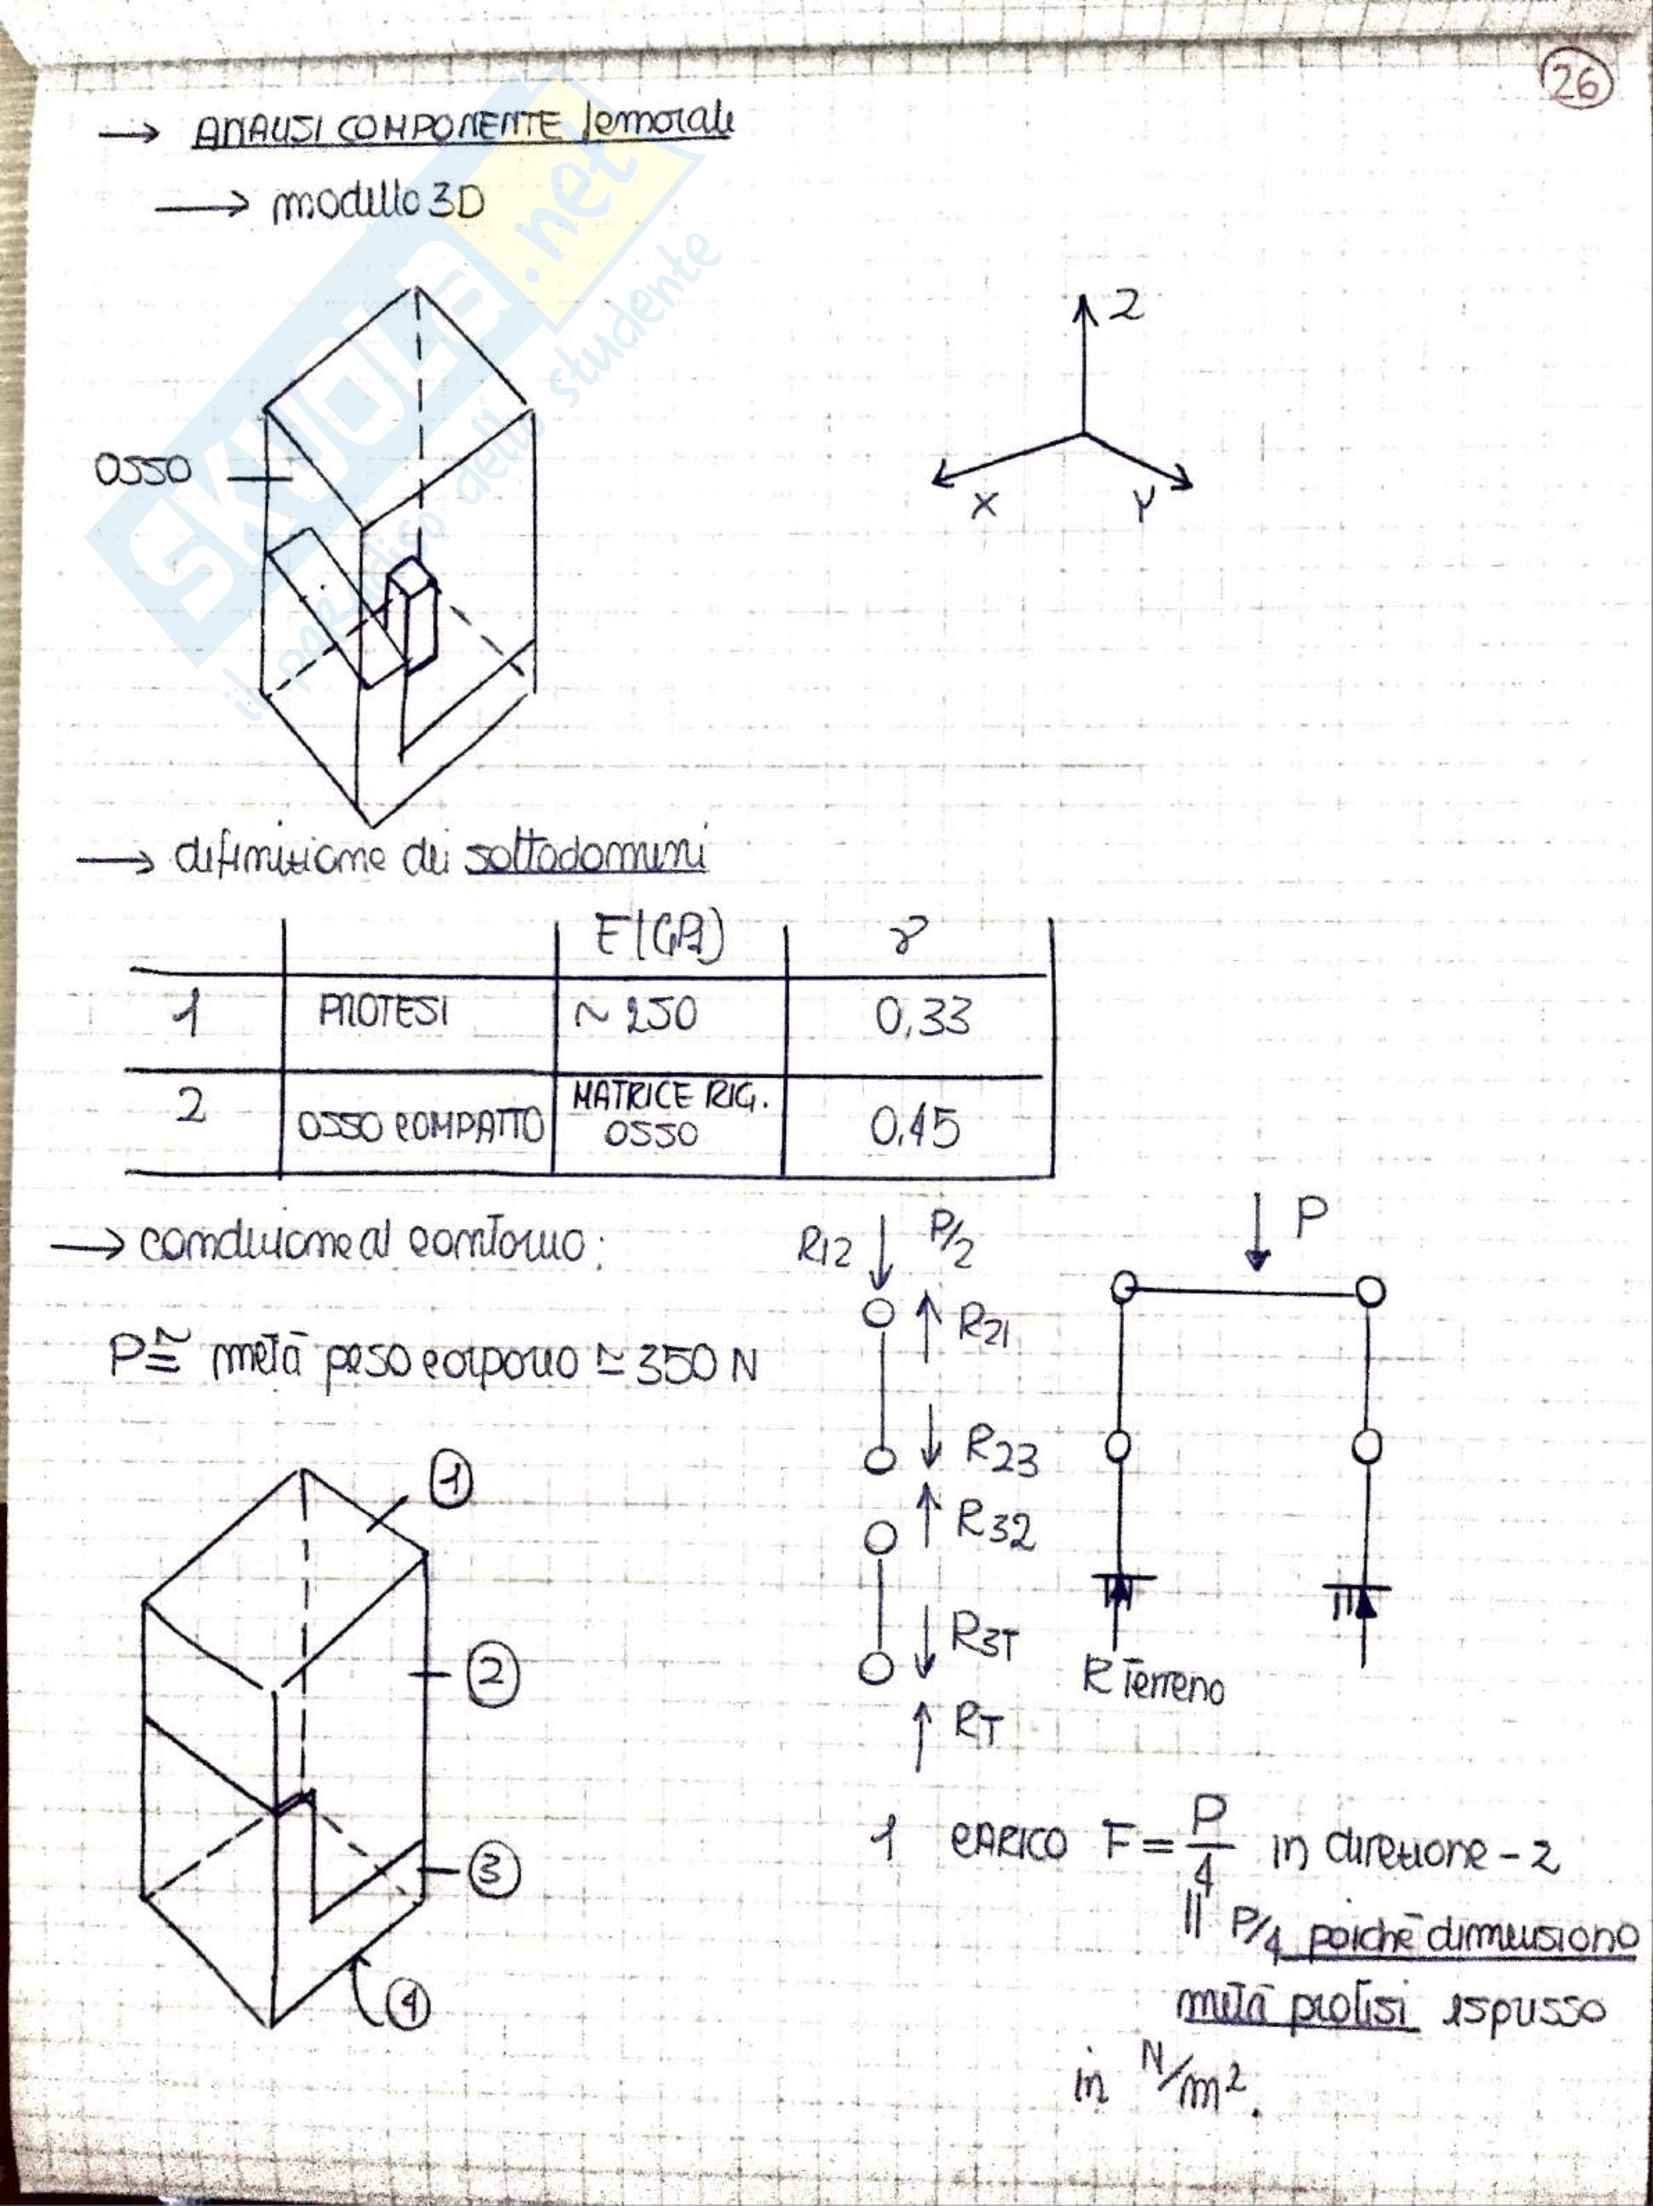 26
→ ANALISI COMPONENTE femorale
→ modello 3D
Z
X
Y
OSSO
→ definizione dei sottodomini
E (GPa) γ
1 PROTESI ~ 250 0,33
2 OSSO COMPATTO MATRICE RIG. OSSO 0.45
→ condizione al contorno:
P ≅ metà peso corporeo ≃ 350 N
R12 ↓ P/2
↑ R21
↓ R23
↑ R32
↓ R3T
↑ RT
↓ P
R Terreno
1
2
3
4
1 CARICO F = P/4 in direzione - z
|| P/4 poichè dimensiono
metà protesi espresso
in N/m².
SKUOLA.net
il paradiso dello studente